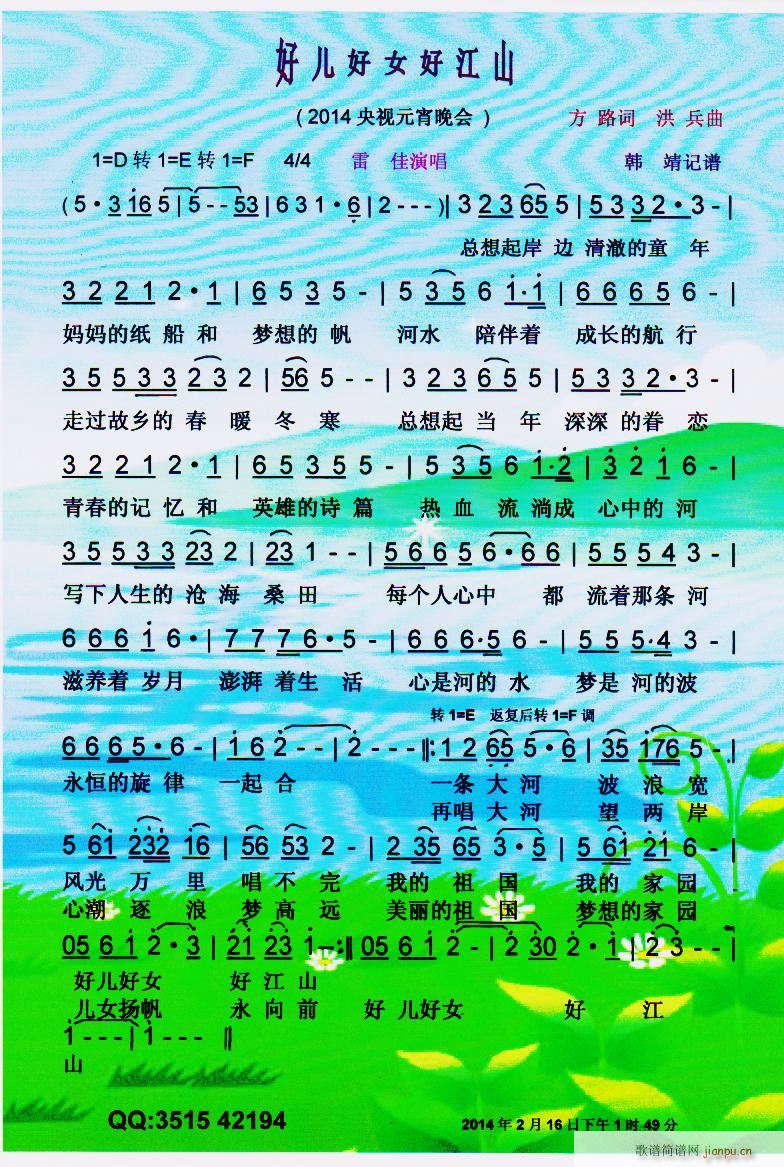 好儿好女好江山
(2014央视元宵晚会)
方 路词 洪 兵曲
1=D 转 1=E 转 1=F 4/4 雷 佳演唱 韩 靖记谱
( 5 · 3 16 5 | 5 - - 53 | 6 3 1 · 6 | 2 - - - ) | 3 2 3 65 5 | 5 3 3 2 · 3 - |
总想起岸 边 清澈的童 年
3 2 2 1 2 · 1 | 6 5 3 5 - | 5 3 5 6 1 · 1 | 6 6 6 5 6 - |
妈妈的纸 船 和 梦想的 帆 河水 陪伴着 成长的航 行
3 5 5 3 3 2 3 2 | 56 5 - - | 3 2 3 6 5 5 | 5 3 3 2 · 3 - |
走过故乡的 春 暖 冬 寒 总想起 当 年 深深 的眷 恋
3 2 2 1 2 · 1 | 6 5 3 5 5 - | 5 3 5 6 1 · 2 | 3 2 1 6 - |
青春的记 忆 和 英雄的诗 篇 热 血 流 淌成 心中的 河
3 5 5 3 3 23 2 | 23 1 - - | 5 6 6 5 6 · 6 6 | 5 5 5 4 3 - |
写下人生的 沧 海 桑 田 每个人心中 都 流着那条 河
6 6 6 1 6 · | 7 7 7 6 · 5 - | 6 6 6 · 5 6 - | 5 5 5 · 4 3 - |
滋养着 岁月 澎湃 着生 活 心是河的 水 梦是 河的波
转 1=E 返复后转 1=F 调
6 6 6 5 · 6 - | 1 6 2 - - | 2 - - - ‖: 1 2 65 5 · 6 | 35 176 5 - |
永恒的旋 律 一起 合 一条 大 河 波 浪 宽
再唱 大 河 望 两 岸
5 61 232 16 | 56 53 2 - | 2 35 65 3 · 5 | 5 61 21 6 - |
风光 万 里 唱 不 完 我的 祖 国 我的 家园
心潮 逐 浪 梦 高 远 美丽的祖 国 梦想的家 园
05 6 1 2 · 3 | 21 23 1 - :‖ 05 6 1 2 - | 2 30 2 · 1 | 2 3 - - |
好儿好女 好 江 山
儿女扬帆 永 向 前 好 儿好女 好 江
1 - - - | 1 - - - ‖
山
QQ:3515 42194
2014 年 2 月 16 日下午 1 时 49 分
歌谱简谱网
jianpu.cn